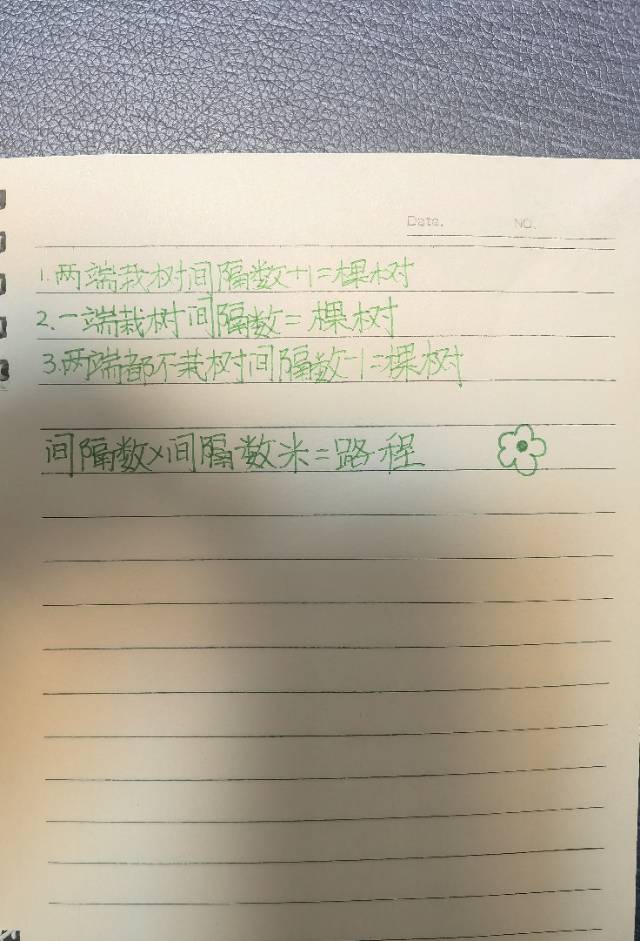 Date. NO.
1.两端栽树间隔数+1=棵树
2.一端栽树间隔数=棵树
3.两端都不栽树间隔数-1=棵树
间隔数×间隔数米=路程